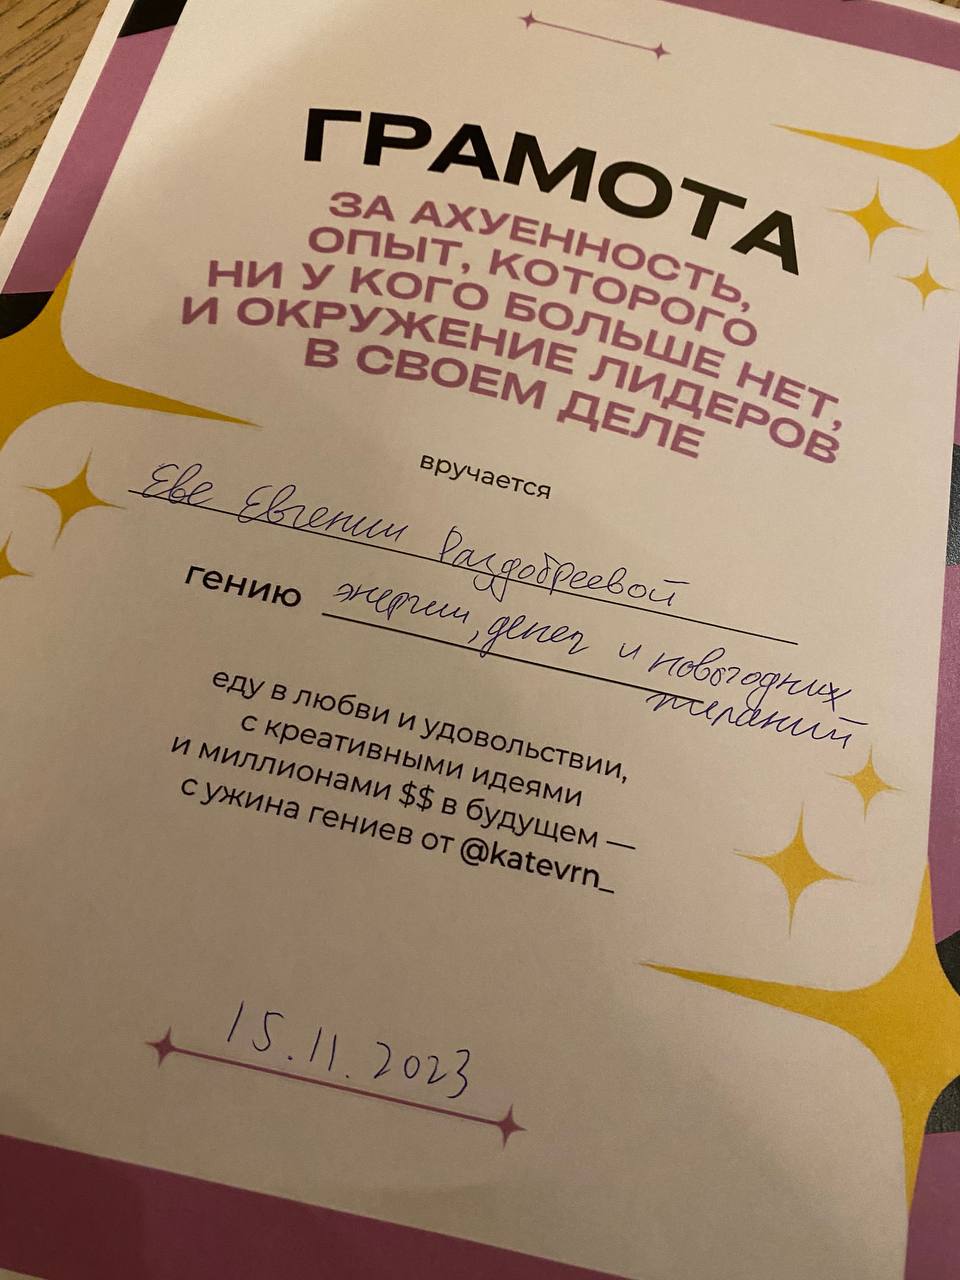 ГРАМОТА
ЗА АХУЕННОСТЬ,
ОПЫТ, КОТОРОГО
НИ У КОГО БОЛЬШЕ НЕТ,
И ОКРУЖЕНИЕ ЛИДЕРОВ
В СВОЕМ ДЕЛЕ
вручается
Еве Евгении Раздобреевой
гению энергии, денег и новогодних
желаний
еду в любви и удовольствии,
с креативными идеями
и миллионами $$ в будущем —
с ужина гениев от @katevrn_
15.11.2023